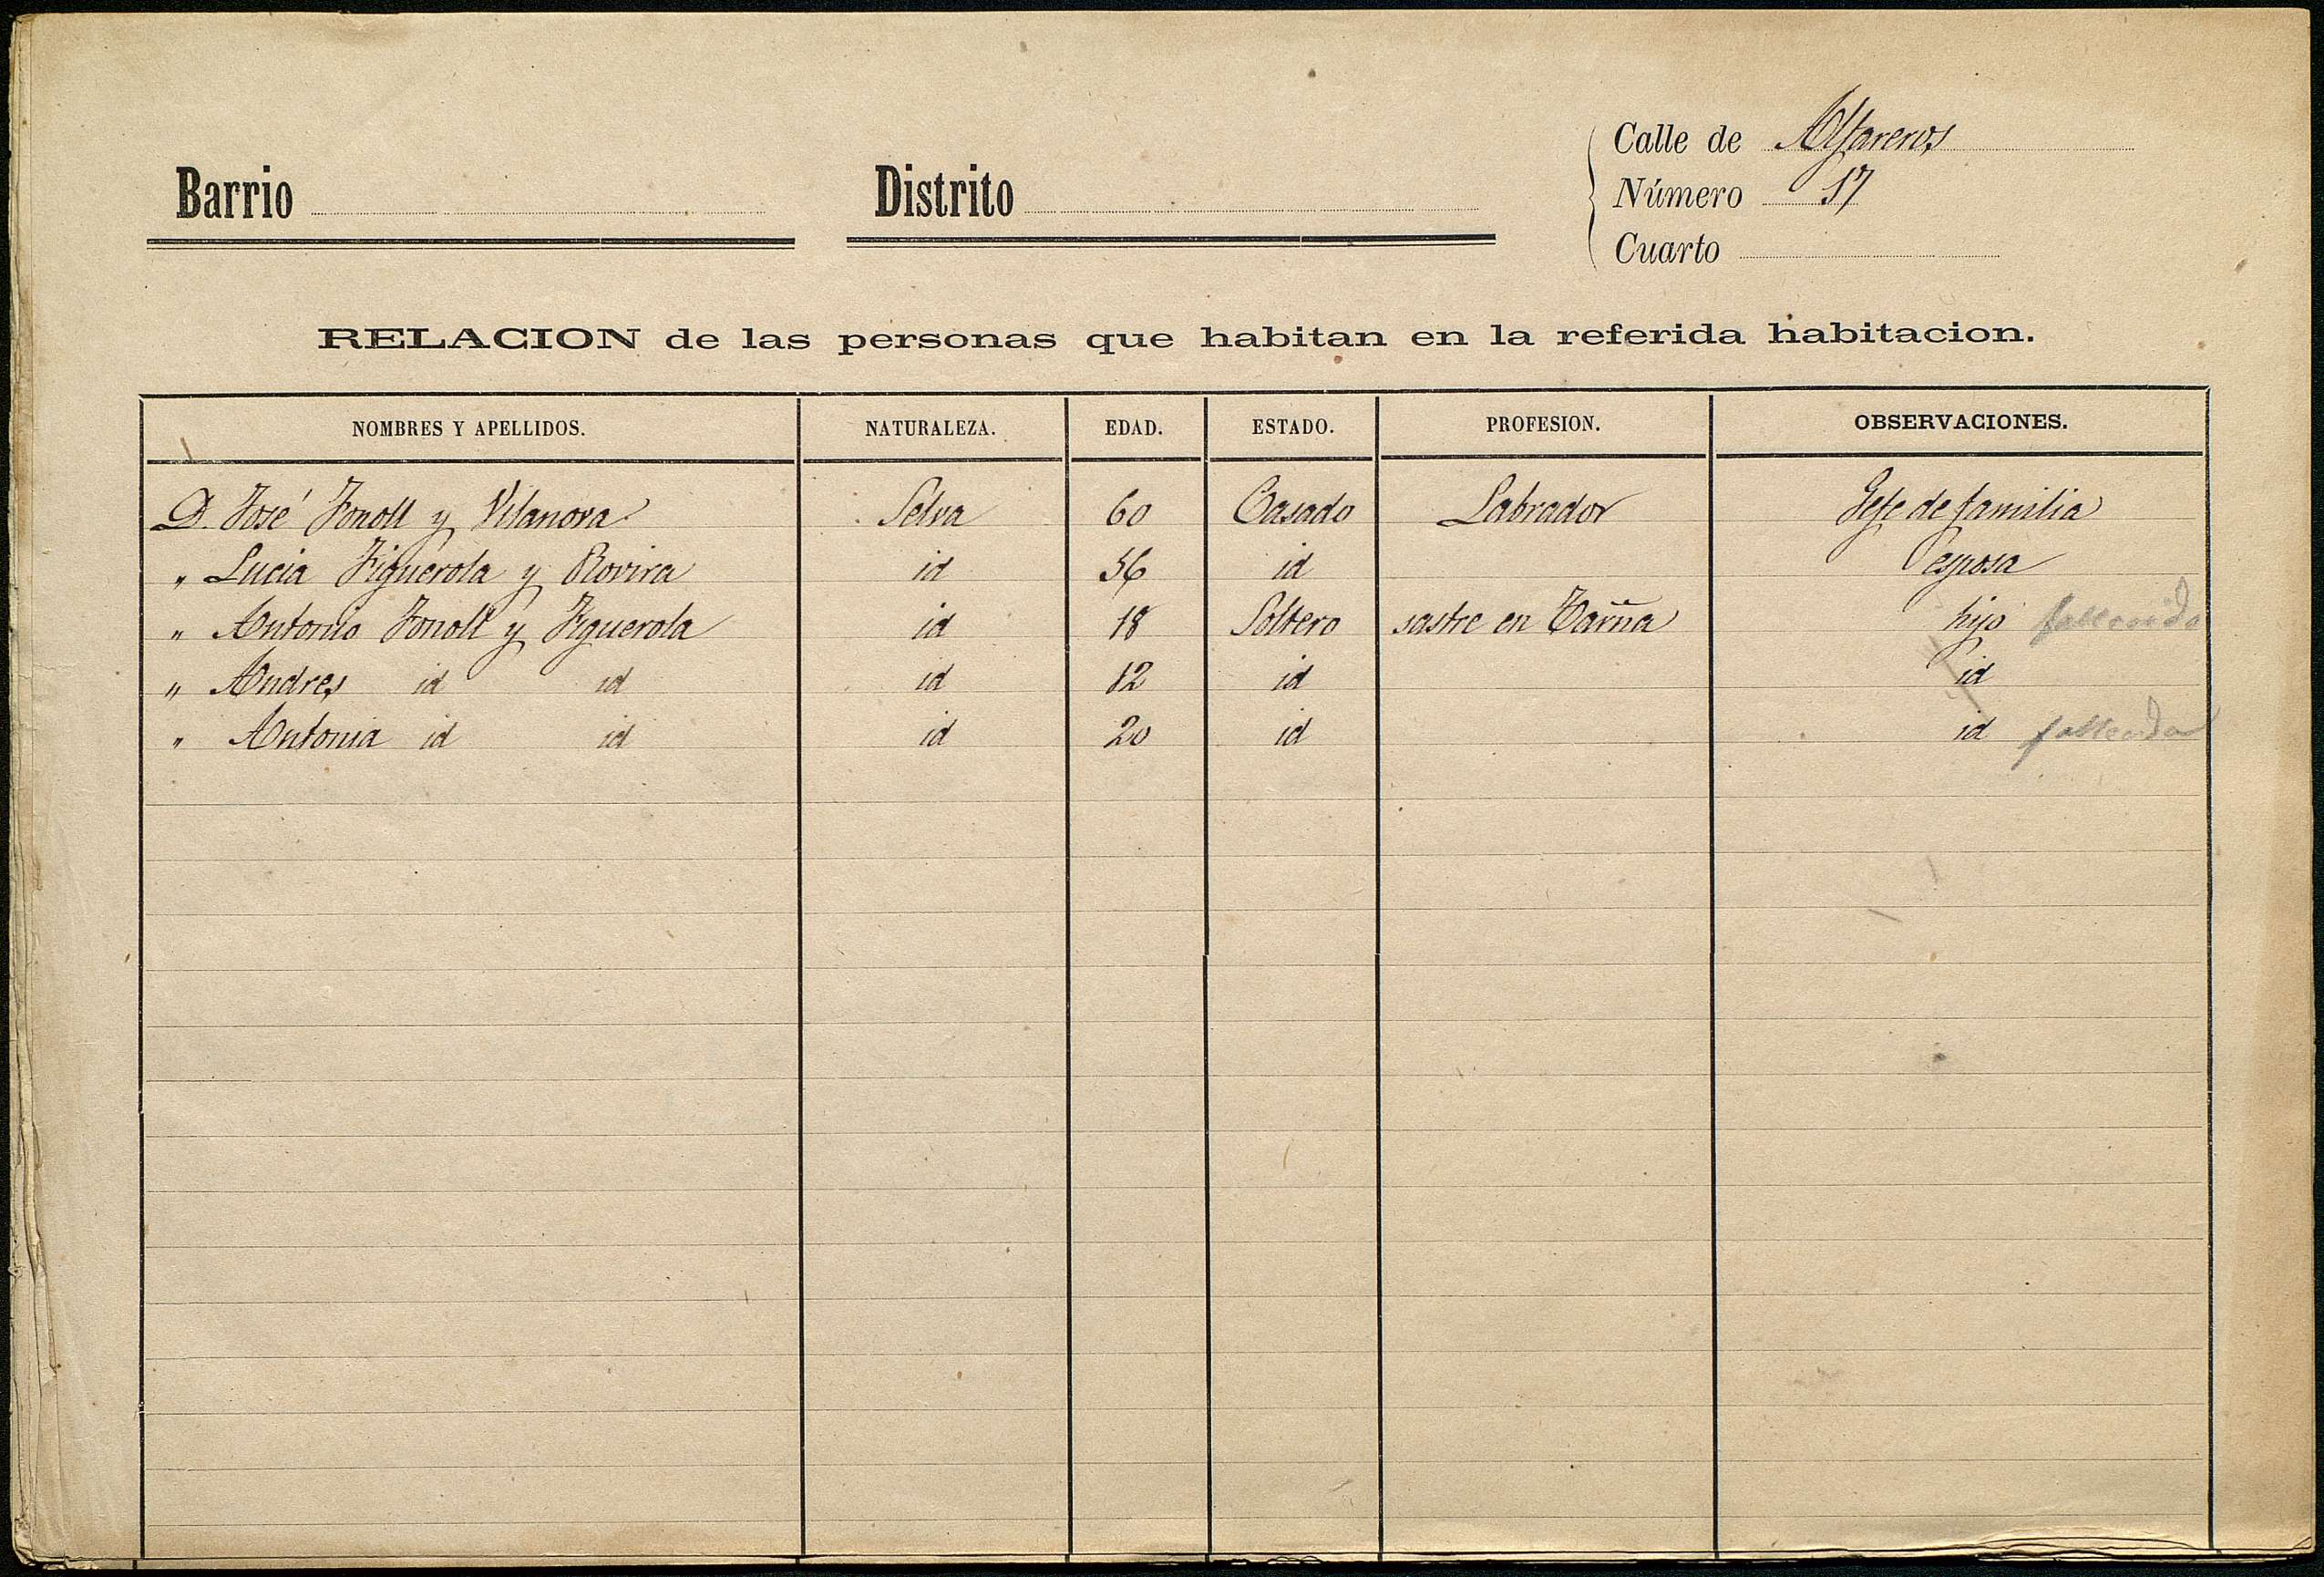 Calle de Alfareros
Barrio Distrito Número 17
Cuarto
RELACION de las personas que habitan en la referida habitacion.
NOMBRES Y APELLIDOS. NATURALEZA. EDAD. ESTADO. PROFESION. OBSERVACIONES.
D. José Fonoll y Vilanova Selva 60 Casado Labrador Jefe de familia
" Lucia Figuerola y Rovira id 56 id esposa
" Antonio Fonoll y Figuerola id 18 Soltero sastre en Tarña hijo fallecido
" Andres id id id 12 id id
" Antonia id id id 20 id id fallecida